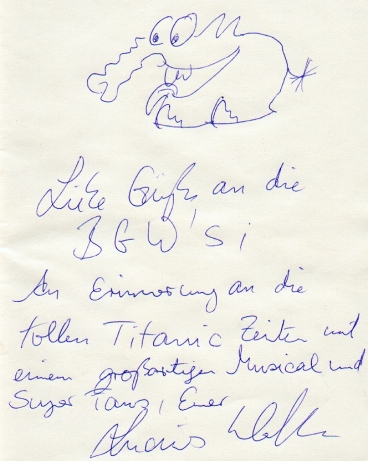 Liebe Grüße, an die
BGW'si
An Erinnerung an die
tollen Titanic Zeiten mit
einem großartigen Musical und
Super Tanz, Euer